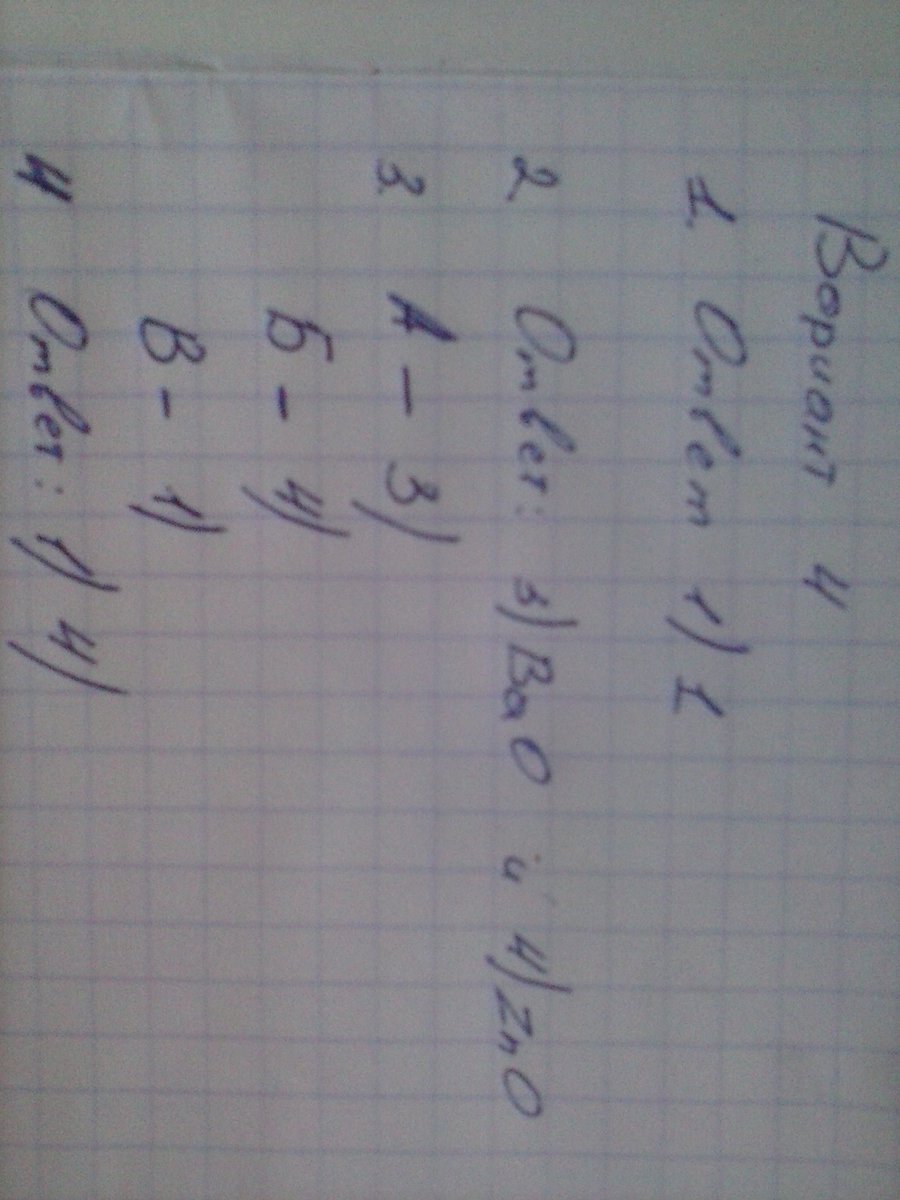 Вариант 4
1. Ответ 1) 1
2 Ответ: 3) BaO и 4) ZnO
3. А - 3)
Б - 4)
В - 1)
4 Ответ: 1) 4)